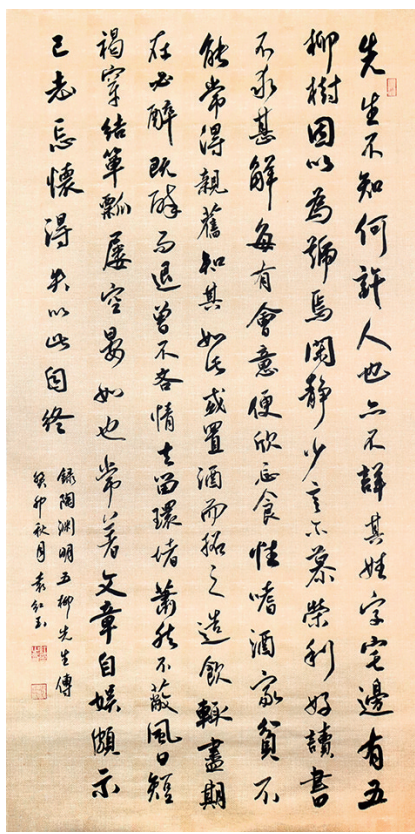 先生不知何許人也亦不詳其姓字宅邊有五
柳樹因以為號焉閑靜少言不慕榮利好讀書
不求甚解每有會意便欣忘食性嗜酒家貧不
能常得親舊知其如此或置酒而招之造飲輒盡期
在必醉既醉而退曾不吝情去留環堵蕭然不蔽風日短
褐穿結簞瓢屢空晏如也常著文章自娛頗示
己志忘懷得失以此自終
錄陶淵明五柳先生傳
癸卯秋月袁紅